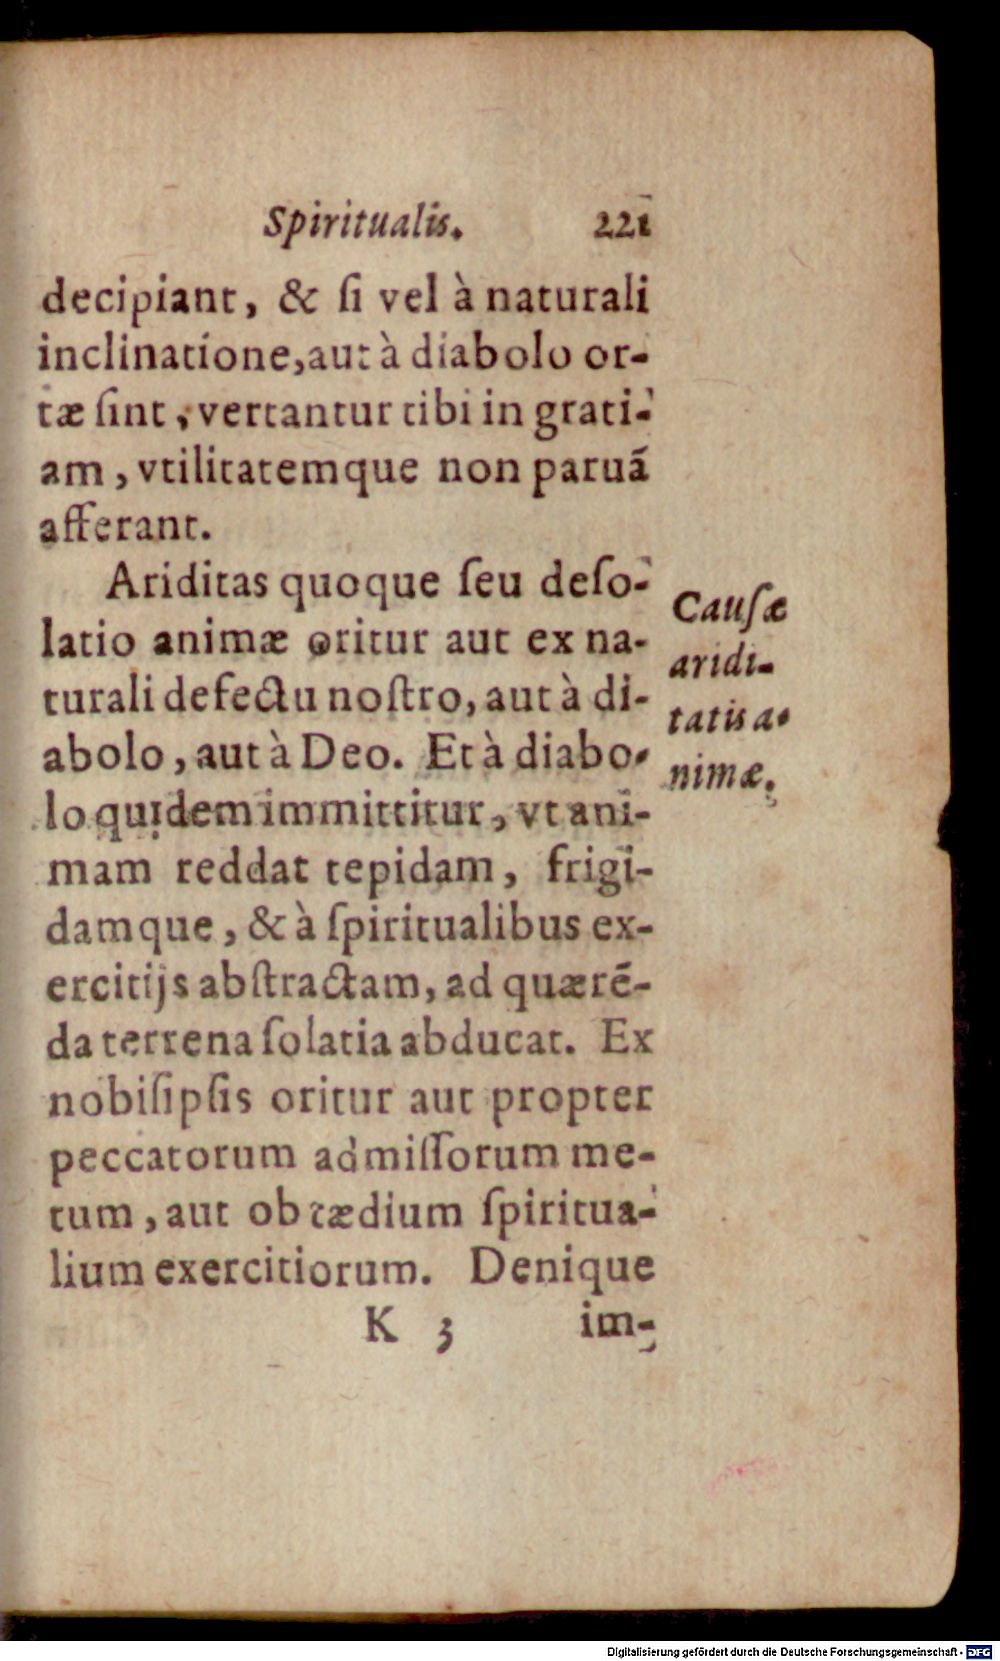 Spiritualis. 221
decipiant, & ſi vel à naturali
inclinatione, aut à diabolo or-
tæ ſint, vertantur tibi in grati-
am, vtilitatemque non paruã
afferant.
Ariditas quoque ſeu deſo-
latio animæ oritur aut ex na-
turali defectu noſtro, aut à di-
abolo, aut à Deo. Et à diabo-
lo quidem immittitur, vt ani-
mam reddat tepidam, frigi-
damque, & à ſpiritualibus ex-
ercitijs abſtractam, ad quærē-
da terrena ſolatia abducat. Ex
nobiſipſis oritur aut propter
peccatorum admiſſorum me-
tum, aut ob tædium ſpiritua-
lium exercitiorum. Denique
K 3 im-
Cauſæ
aridi-
tatis a-
nimæ.
Digitalisierung gefördert durch die Deutsche Forschungsgemeinschaft - DFG